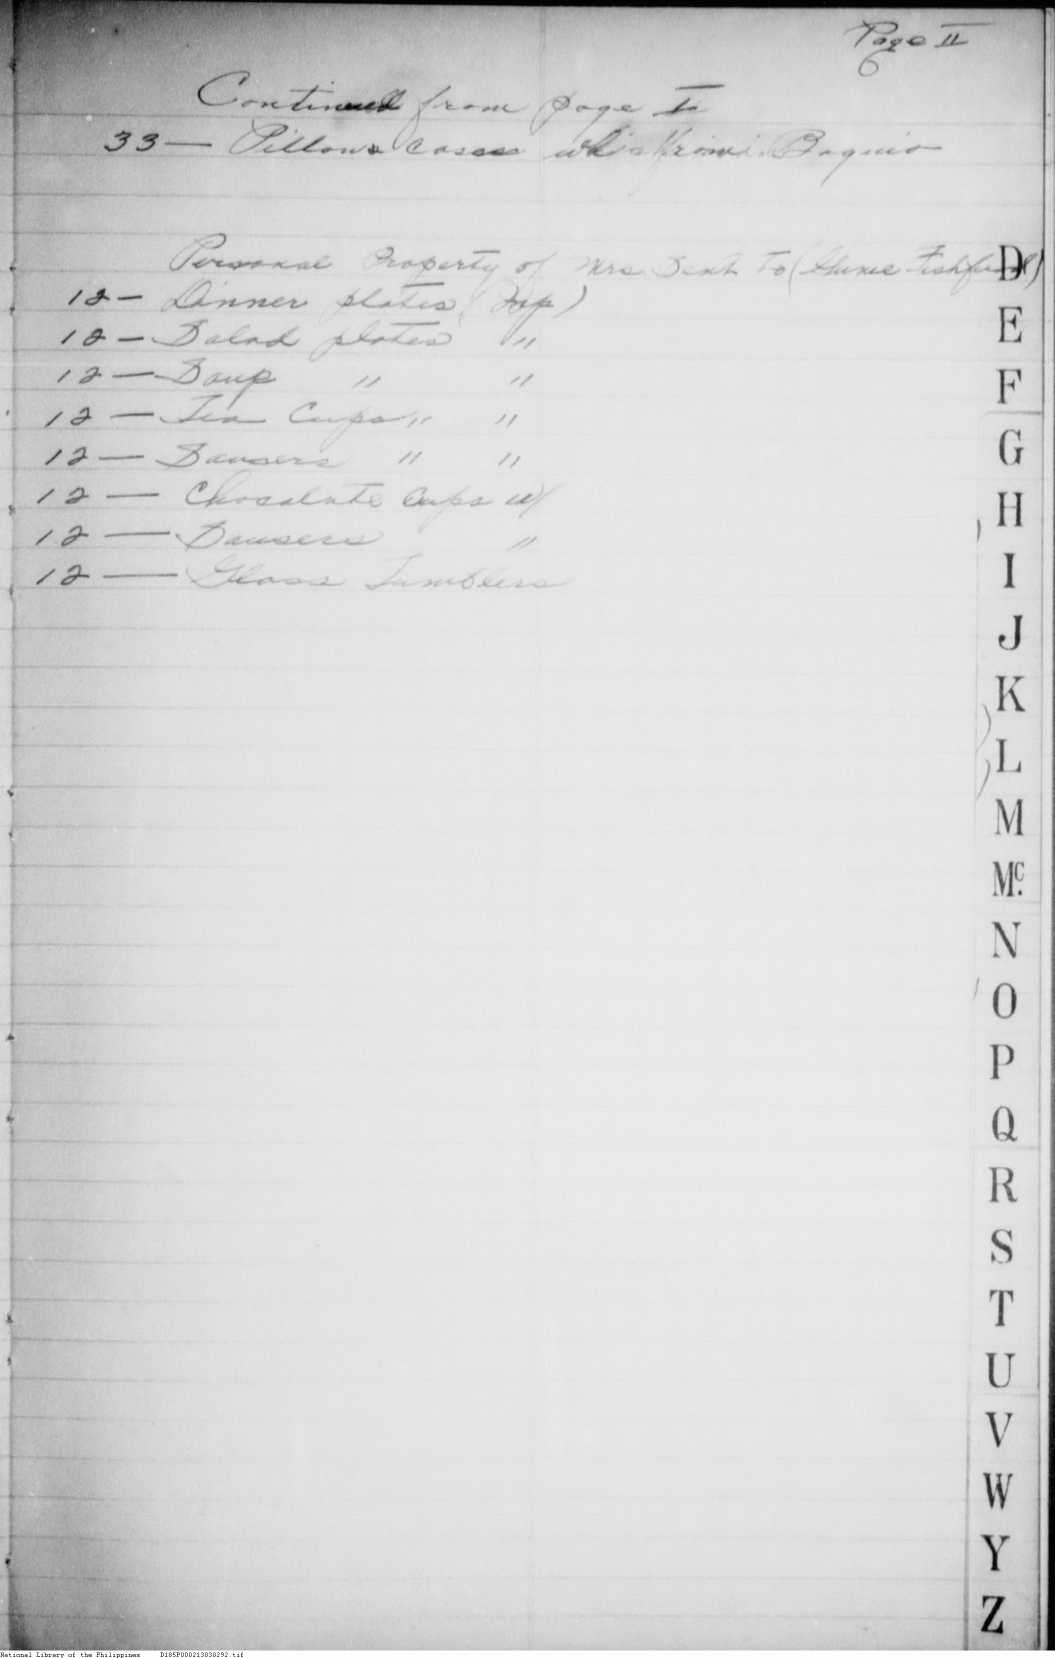 Page II
Continued from page I
33 — Pillows cases Baguio
Personal Property of Mrs to
12 — Dinner plates (Jap)
12 — Salad plates "
12 — Soup " "
12 — Tea Cups " "
12 — Sausers " "
12 — Chocalate Cups w/
12 — Sausers "
12 — Glass Tumblers
D
E
F
G
H
I
J
K
L
M
Mc.
N
O
P
Q
R
S
T
U
V
W
Y
Z
National Library of the Philippines D185P000213838292.tif